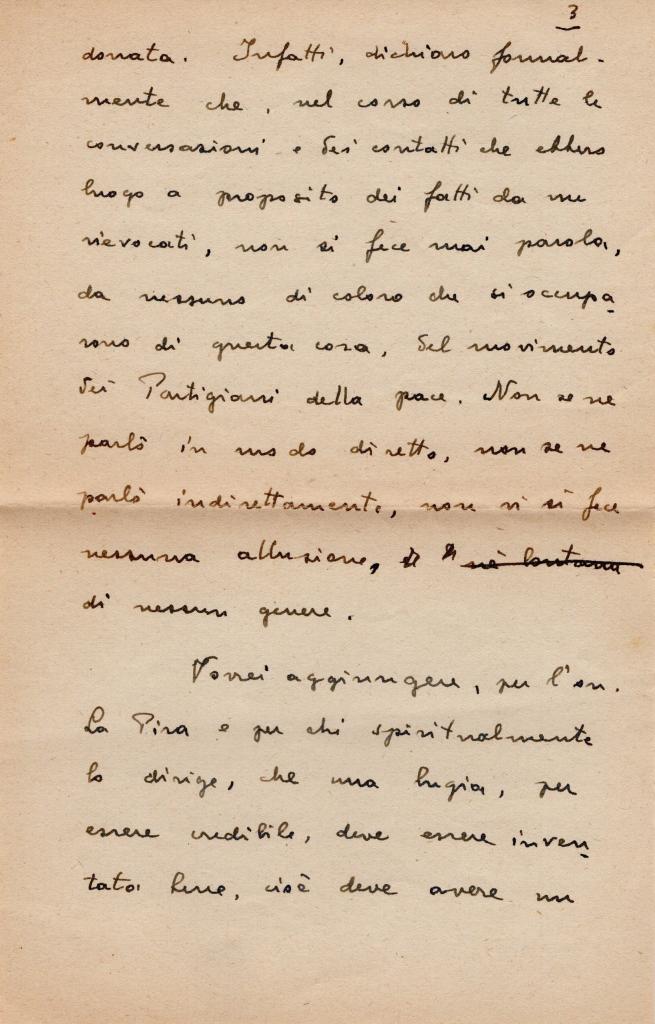 3
donata. Infatti, dichiaro formal-
mente che, nel corso di tutte le
conversazioni e dei contatti che ebbero
luogo a proposito dei fatti da me
rievocati, non si fece mai parola,
da nessuno di coloro che si occupa
rono di questa cosa, del movimento
dei Partigiani della pace. Non se ne
parlò in modo diretto, non se ne
parlò indirettamente, non vi si fece
nessuna allusione, nè lontana
di nessun genere.
Vorrei aggiungere, per l'on.
La Pira e per chi spiritualmente
lo dirige, che una bugia, per
essere credibile, deve essere inven
tata bene, cioè deve avere un